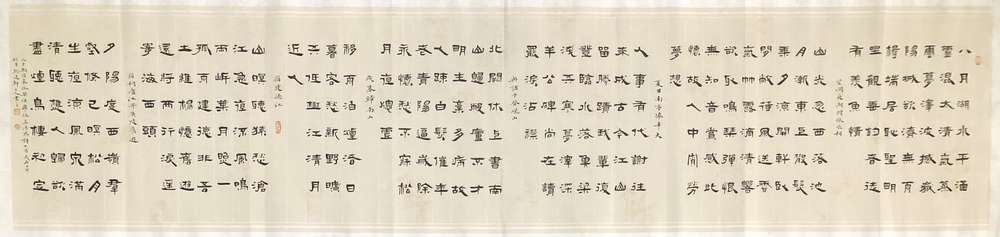 八月湖水平涵
虛混太清氣蒸
雲夢澤波撼岳
陽城欲濟無舟
楫端居恥聖明
坐觀垂釣者徒
有羨魚情
望洞庭湖贈張丞相
山光忽西落池
月漸東上散髮
乘夕涼開軒臥
閒敞荷風送香
氣竹露滴清響
欲取鳴琴彈恨
無知音賞感此
懷故人中宵勞
夢想
夏日南亭懷辛大
人事有代謝往
來成古今江山
留勝蹟我輩復
登臨水落魚梁
淺天寒夢澤深
羊公碑尚在讀
罷淚沾襟
與諸子登峴山
北闕休上書南
山歸敝廬不才
明主棄多病故
人疏白髮催年
老青陽逼歲除
永懷愁不寐松
月夜窗虛
歲暮歸南山
移舟泊煙渚日
暮客愁新野曠
天低樹江清月
近人
宿建德江
山暝聽猿愁滄
江急夜流風鳴
兩岸葉月照一
孤舟建德非吾
土維揚憶舊遊
還將兩行淚遙
寄海西頭
宿桐廬江寄廣陵舊遊
夕陽度西嶺群
壑倏已暝松月
生夜涼風泉滿
清聽樵人歸欲
盡煙鳥棲初定